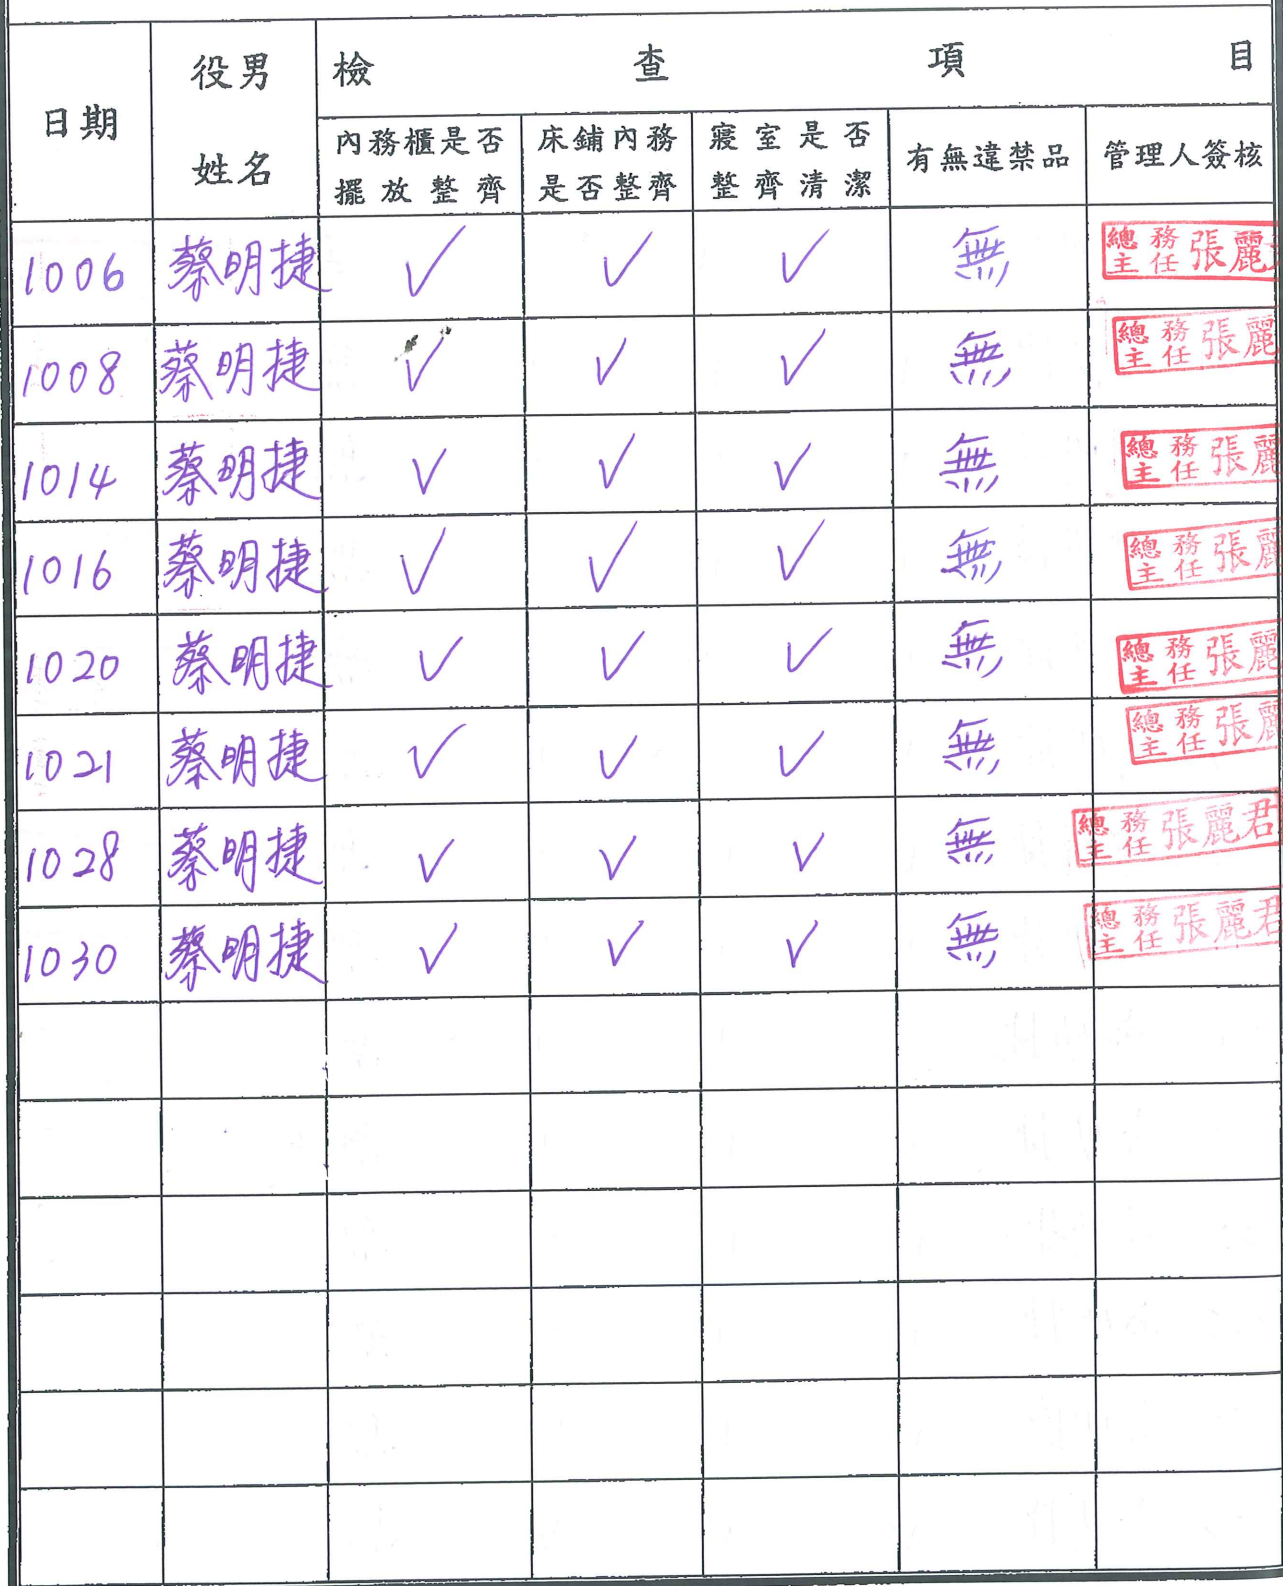 日期 役男姓名 檢查項目
內務櫃是否擺放整齊 床鋪內務是否整齊 寢室是否整齊清潔 有無違禁品 管理人簽核
1006 蔡明捷 ✓ ✓ ✓ 無 總務主任 張麗
1008 蔡明捷 ✓ ✓ ✓ 無 總務主任 張麗
1014 蔡明捷 ✓ ✓ ✓ 無 總務主任 張麗
1016 蔡明捷 ✓ ✓ ✓ 無 總務主任 張麗
1020 蔡明捷 ✓ ✓ ✓ 無 總務主任 張麗
1021 蔡明捷 ✓ ✓ ✓ 無 總務主任 張麗
1028 蔡明捷 ✓ ✓ ✓ 無 總務主任 張麗君
1030 蔡明捷 ✓ ✓ ✓ 無 總務主任 張麗君